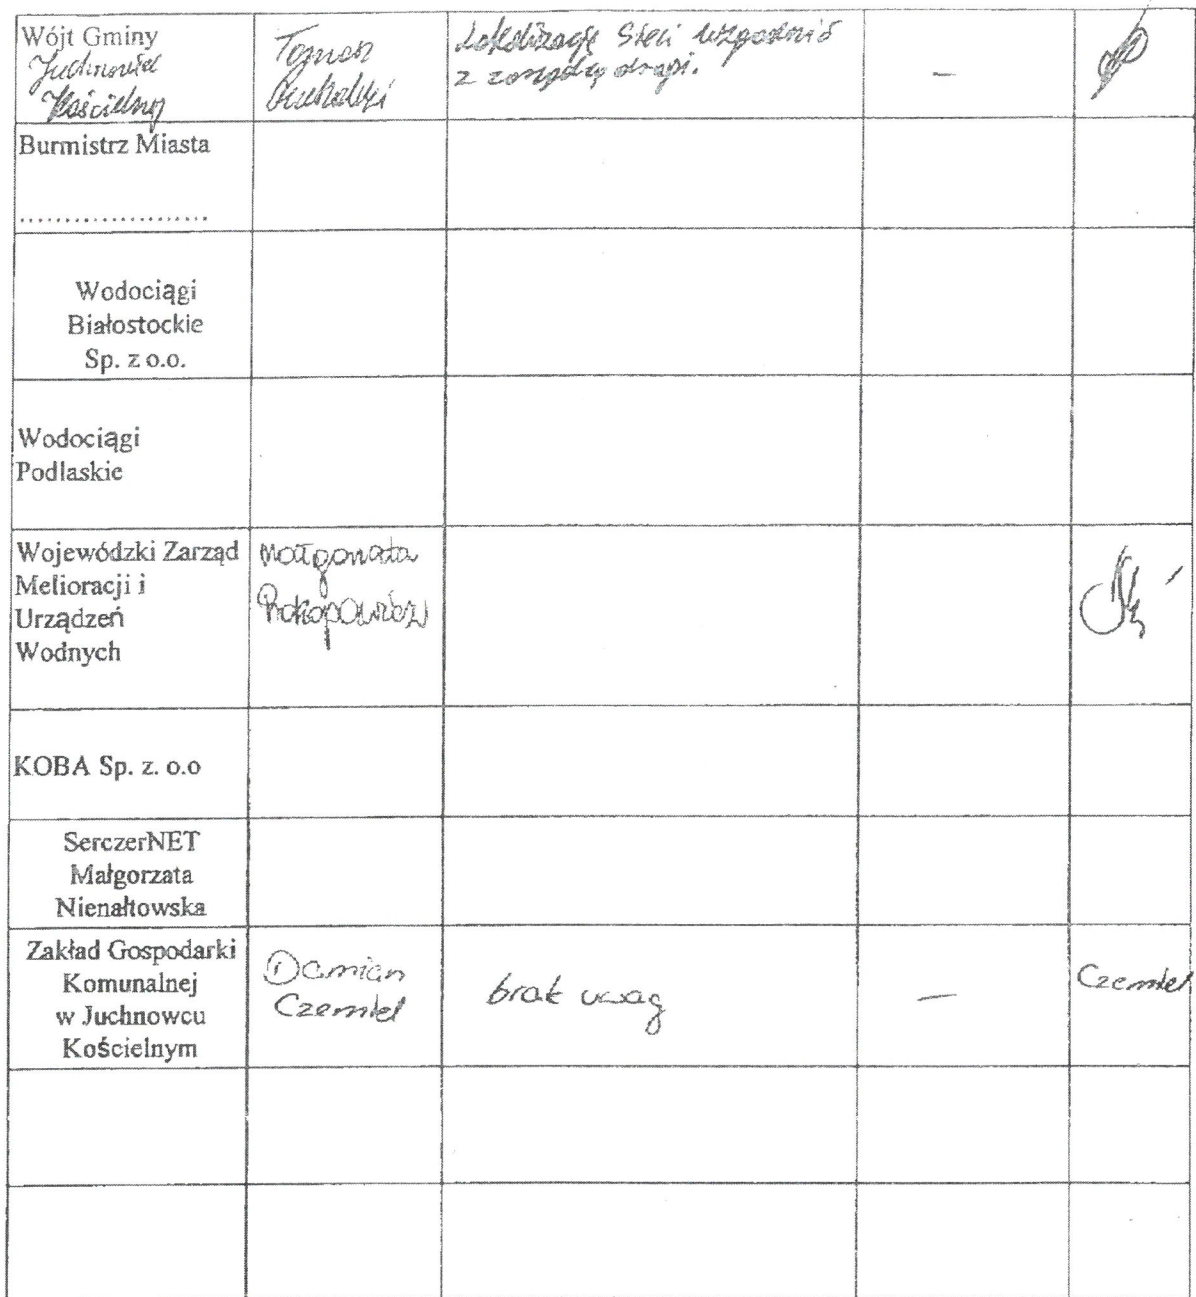 Wójt Gminy
Juchnowiec
Kościelny
Tomasz
Lokalizację sieci uzgodnić
z zarządcą drogi.
—
Burmistrz Miasta
.....................
Wodociągi
Białostockie
Sp. z o.o.
Wodociągi
Podlaskie
Wojewódzki Zarząd
Melioracji i
Urządzeń
Wodnych
Małgorzata
Prokopowicz
KOBA Sp. z. o.o
SerczerNET
Małgorzata
Nienałtowska
Zakład Gospodarki
Komunalnej
w Juchnowcu
Kościelnym
Damian
Czemiel
brak uwag
—
Czemiel